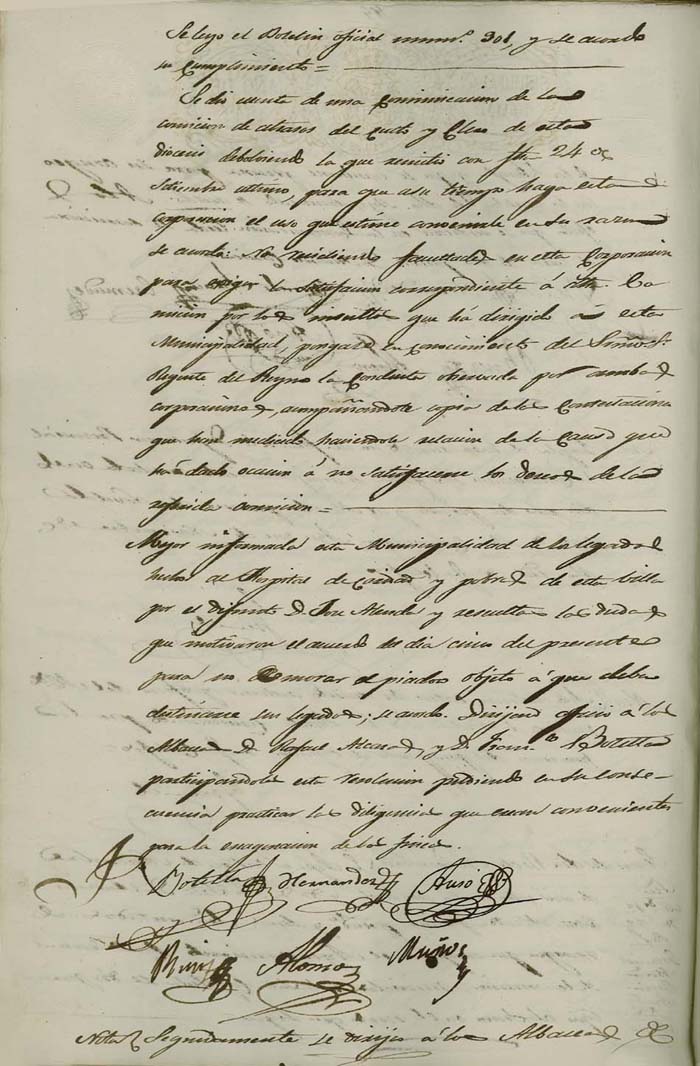 Se leyo el Boletin oficial num.º 301, y se acordo
su cumplimiento =
Se dió cuenta de una comunicacion de la
comision de atrasos del Culto y Clero de esta
diocesis debolviendo la que remitió con fha 24 de
Setiembre ultimo, para que a su tiempo haga esta
corporacion el uso que estime conveniente en su razon
se acordó: No recidiendo facultades en esta Corporacion
para exigir la satisfacion correspondiente á dha. Co
mision por los insultos que há dirigido á esta
Municipalidad, pongase en conocimiento del Señor
Regente del Reyno la conducta observada por ambas
corporaciones, acompañandole copia de las Contestaciones
que han mediado haciendole relacion de la causa que
ha dado ocasion á no satisfacerse los deseos de la
referida comision =
Mejor informada esta Municipalidad de los legados
hechos al Hospital de Caridad y pobres de esta villa
por el difunto D. José Alenda y resueltas las dudas
que motivaron el acuerdo del dia cinco del presente
para no demorar el piadoso objeto á que deben
destinarse sus legados; se acordó. Dirijase oficio á los
Albaceas D. Rafael Alcaraz, y D. Fran.co Botella
participandoles esta resolucion pudiendo en su conse-
cuencia practicar las diligencias que crean convenientes
para la enagenacion de las fincas.
Botella Hernandez Auso
Ruiz Alonso Muñoz
Nota Seguidamente se dirijió á los Albaceas